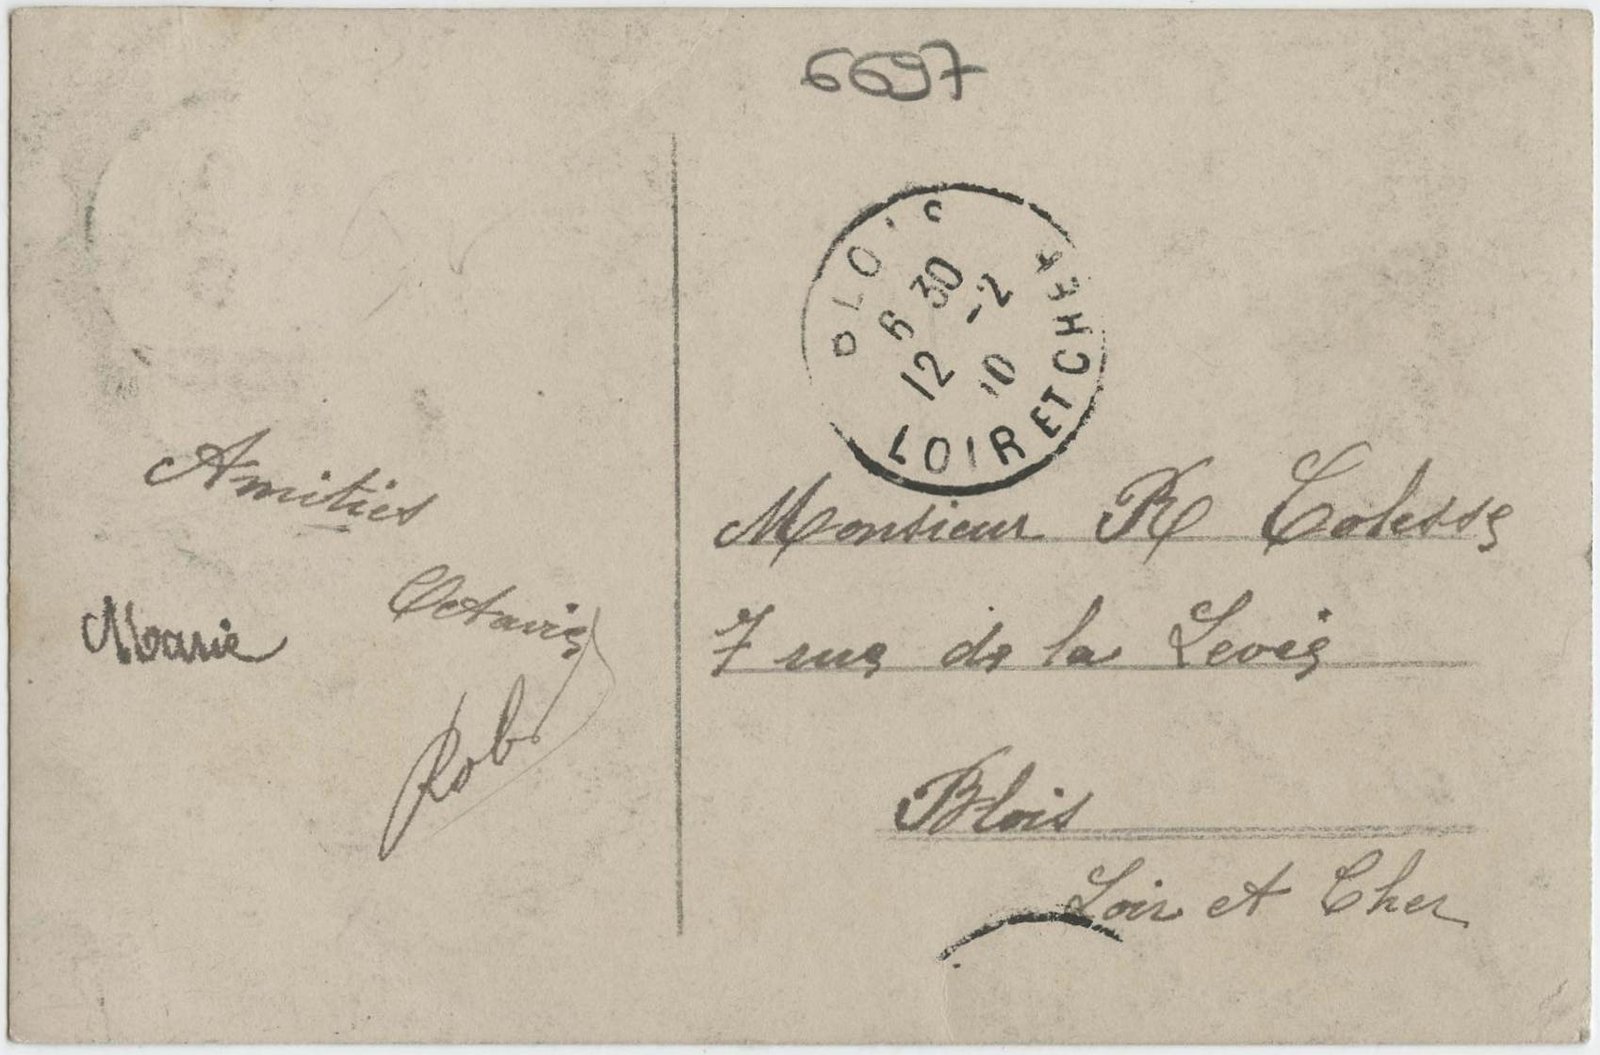 6697
BLOIS
6 30
12 -2
10
LOIR ET CHER
Amitiés
Octavie
Marie
Rob
Monsieur R
7 rue de la Levée
Blois
Loir et Cher